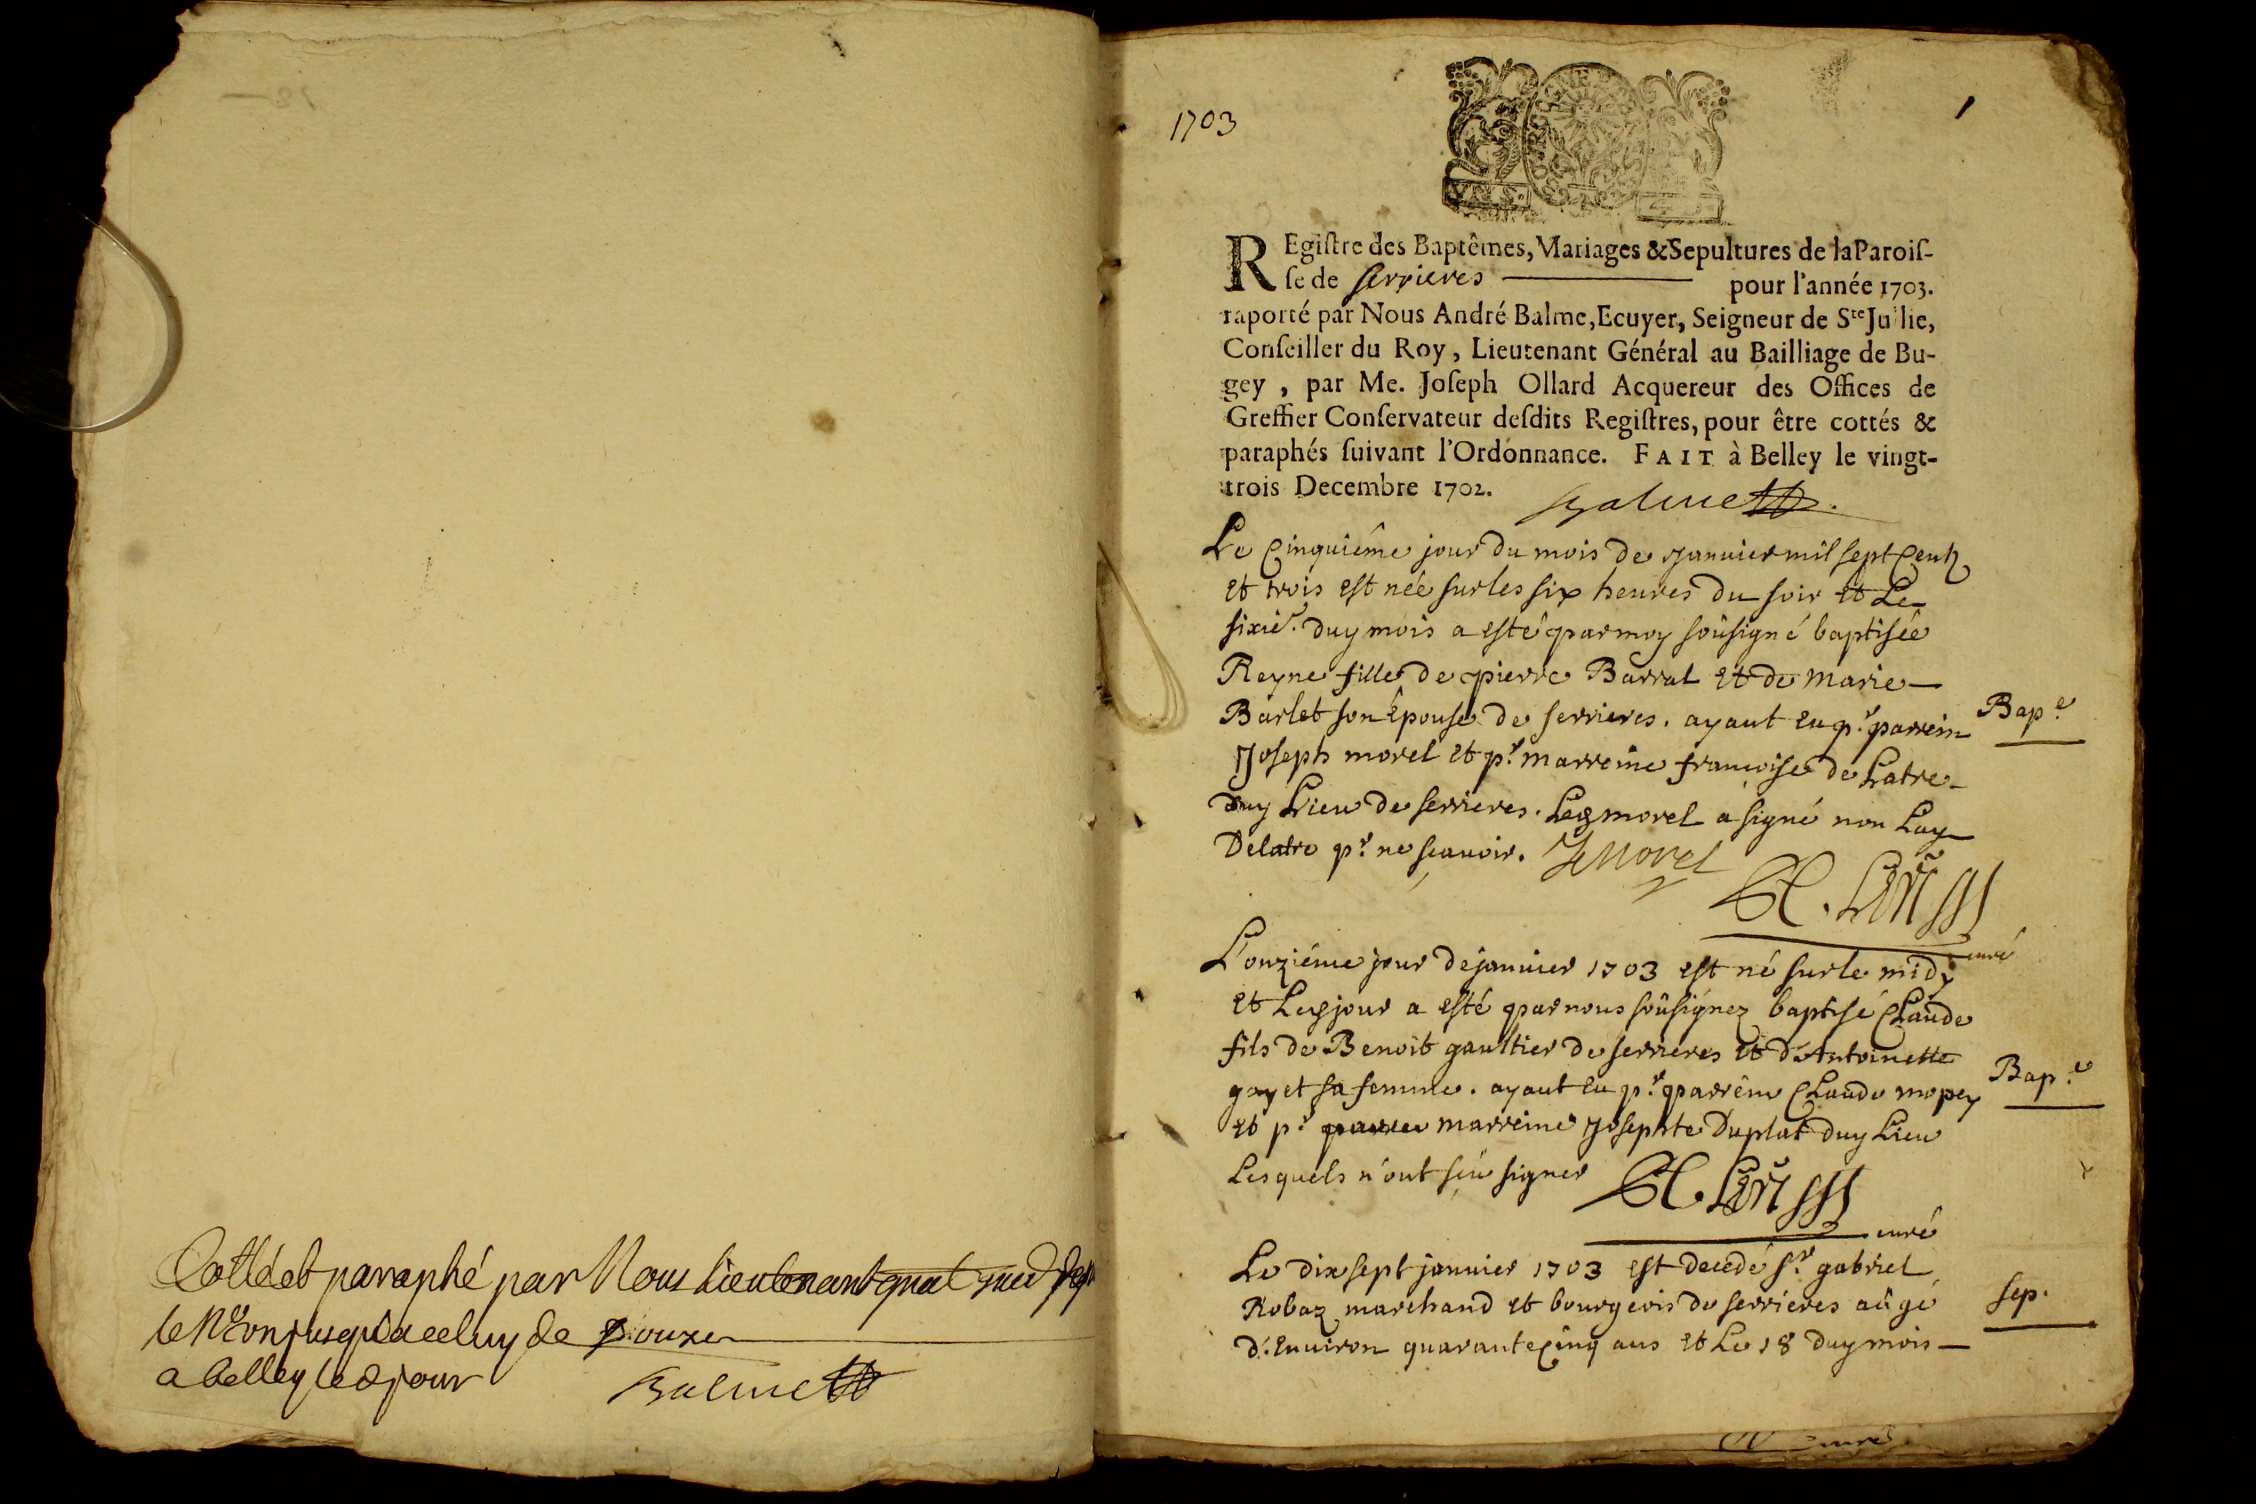 Cotté et paraphé par Nous Lieutenant gnal
le N.º un jusqu'a celuy de Douze
a belley led jour Balme
1703
1
REgiſtre des Baptêmes, Mariages & Sepultures de la Paroiſ-
ſe de serrieres pour l'année 1703.
raporté par Nous André Balme, Ecuyer, Seigneur de Ste Julie,
Conſeiller du Roy, Lieutenant Général au Bailliage de Bu-
gey, par Me. Joſeph Ollard Acquereur des Offices de
Greffier Conſervateur deſdits Regiſtres, pour être cottés &
paraphés ſuivant l'Ordonnance. FAIT à Belley le vingt-
trois Decembre 1702.
Balme
Le cinquiême jour du mois de Janvier mil sept cent
et trois est née sur les six heures du soir et Le
sixie. duy mois a esté par moy soûsigné baptisée
Reyne fille de pierre Barral et de Marie
Barlet son Epouse de serrieres. ayant eu pr. parrein
Bap.e
Joseph morel et pr. marreine francoise de Latre
duy Lieu de serrieres. Led morel a signé non Lay
Delatre pr. ne scavoir. Morel
curé
L'onziéme jour de janvier 1703 est né sur le midy
et Led jour a esté par nous soûsignez baptisé Claude
fils de Benoit gaultier de serrieres et d'Antoinette
gayet sa femme. ayant eu pr. parrein Claude mopey
Bap.e
et pr. marreine Josephte Duplat duy Lieu
Lesquels n'ont sçû signer
curé
Le dix sept janvier 1703 est decedé sr. gabriel
Robaz marchand et bourgeois de serrieres aûgé
sep.
d'Environ quarante cinq ans et Le 18 duy mois